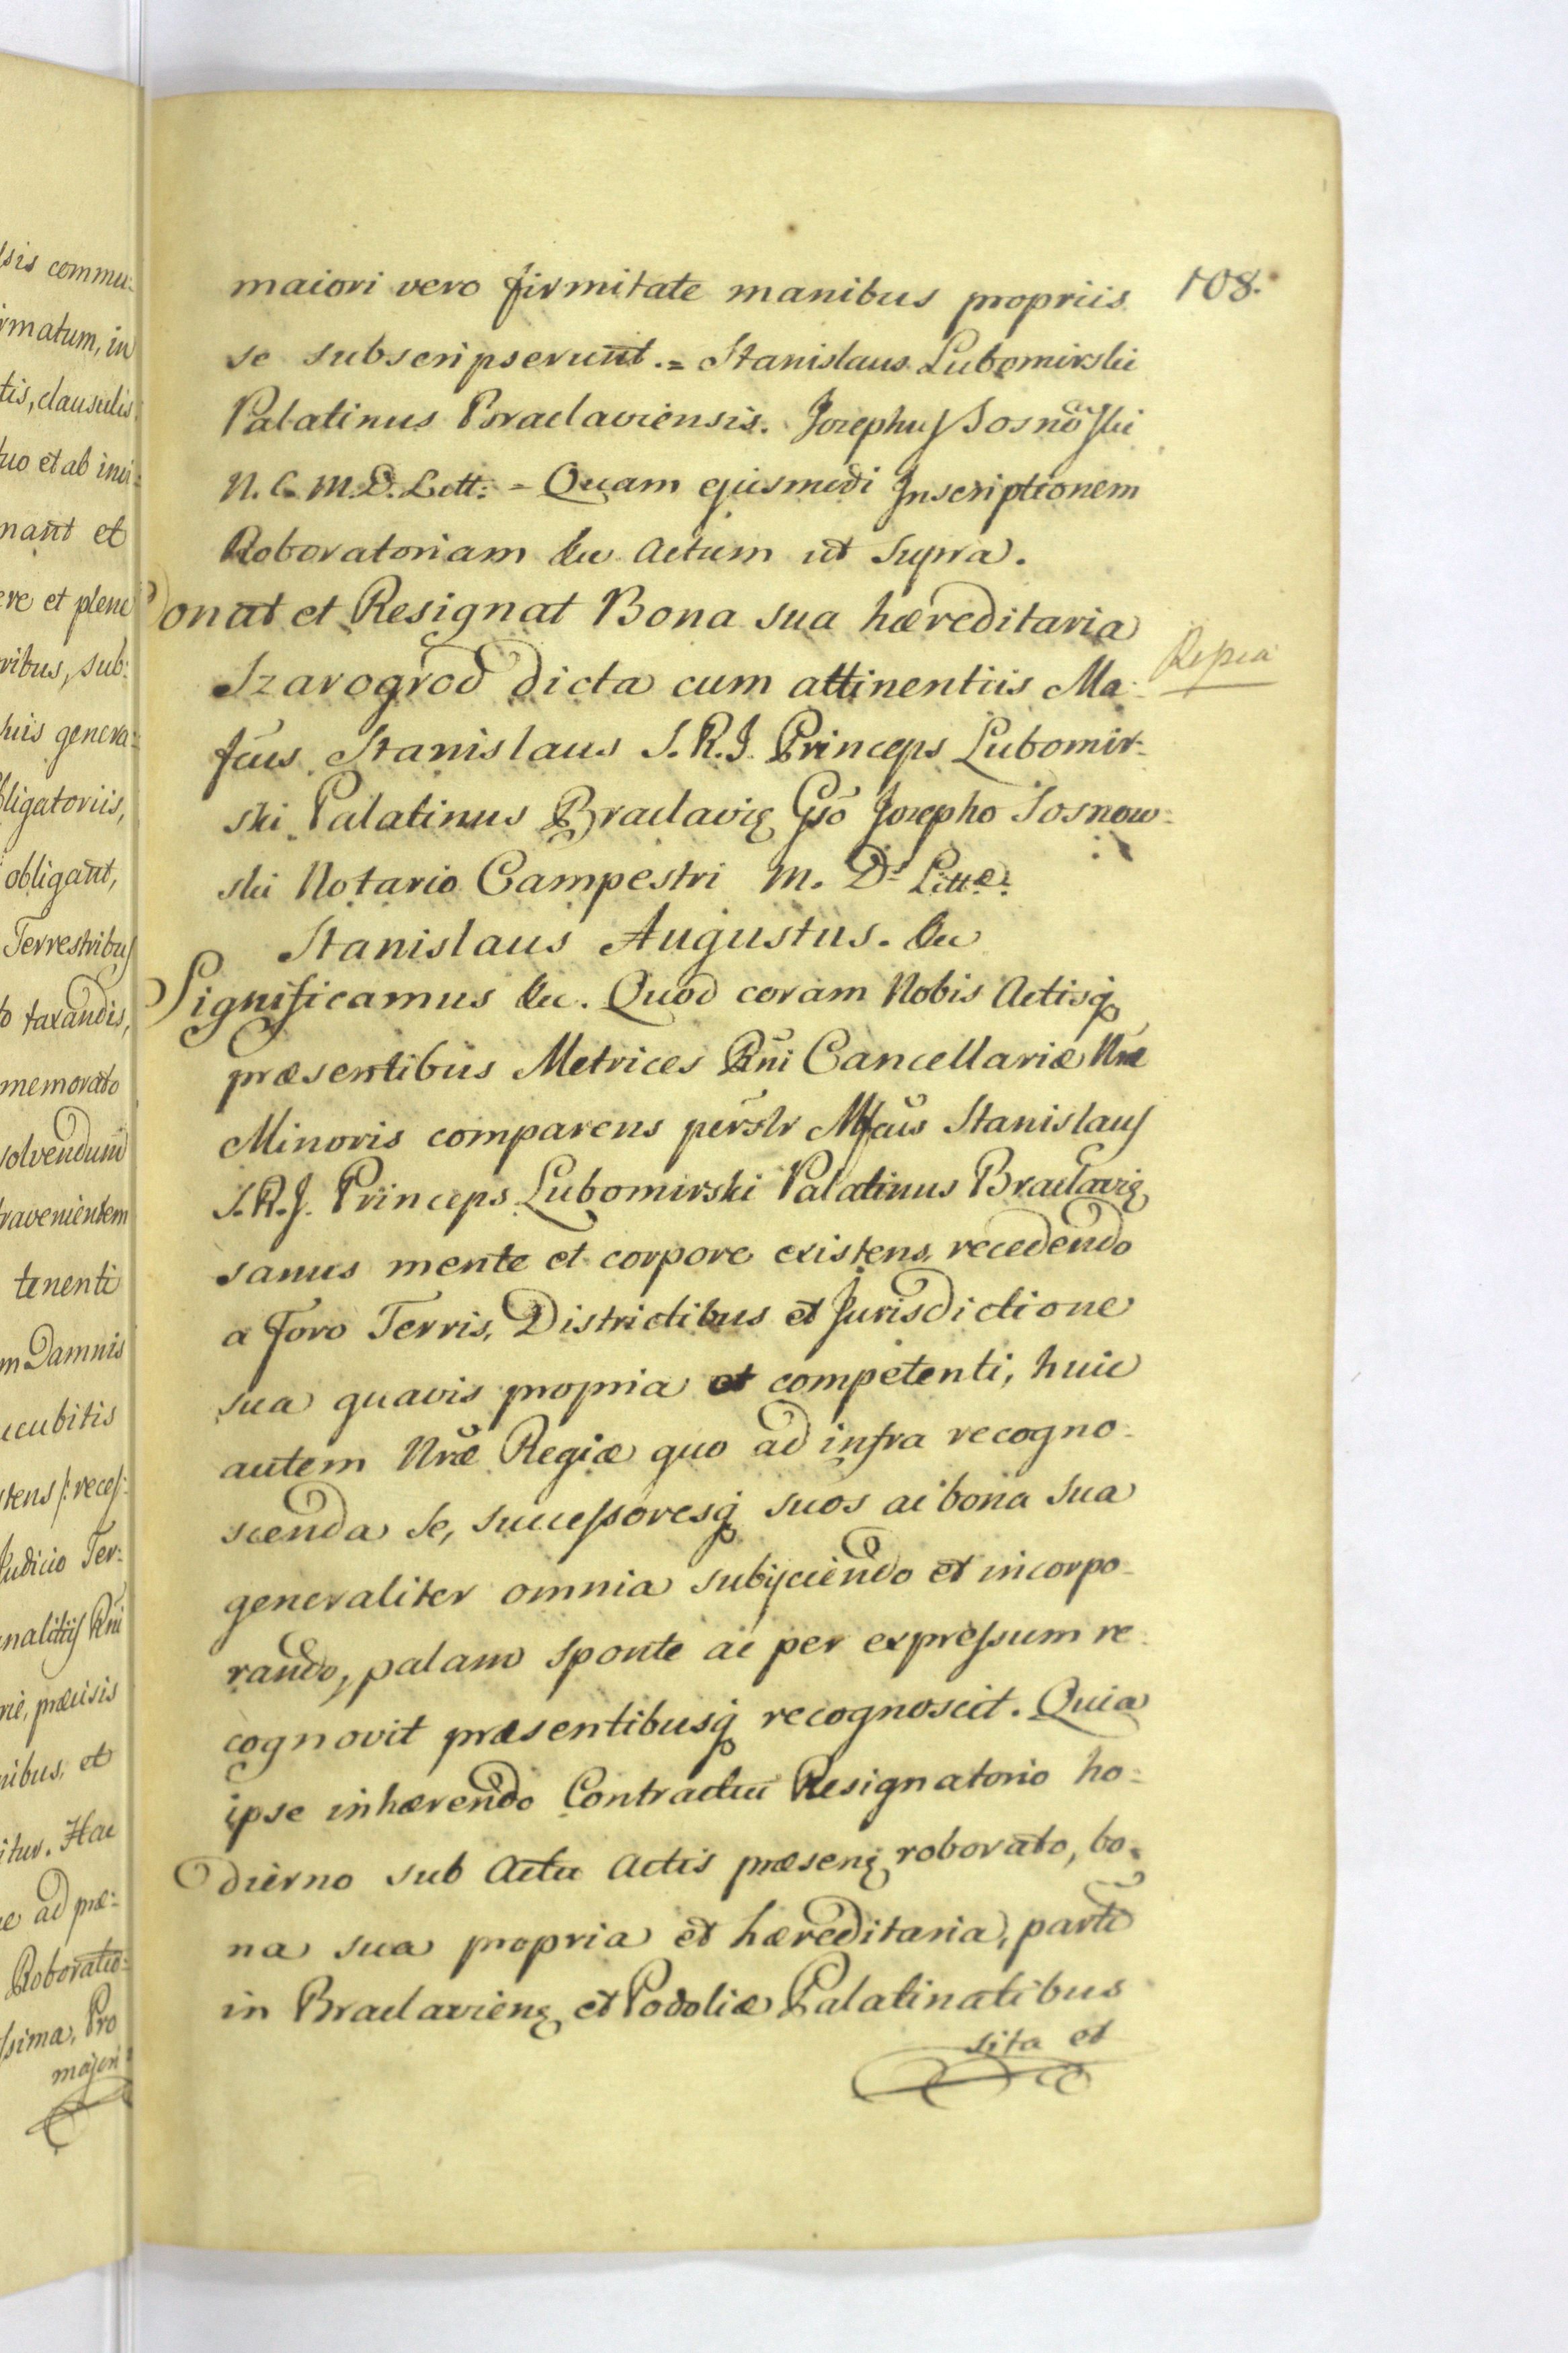 108.
maiori vero firmitate manibus propriis
se subscripserunt. = Stanislaus Lubomirski
Palatinus Braclaviensis. Josephus Sosnoski
N. C. M. D. Litt: = Quam ejusmodi Inscriptionem
Roboratoriam &c Actum ut supra.
Donat et Resignat Bona sua hæreditaria
Szarogrod dicta cum attinentiis Ma-
fcus Stanislaus S. R. J. Princeps Lubomir-
ski Palatinus Braclavię Gso Josepho Sosnow-
ski Notario Campestri M. D. Litt.
Stanislaus Augustus. &c
Significamus &c. Quod coram Nobis Actisq
præsentibus Metrices Rni Cancellariæ Nræ
Minoris comparens perslr Mfcus Stanislaus
S. R. J. Princeps Lubomirski Palatinus Braclavię
sanus mente et corpore existens, recedendo
a Foro Terris, Districtibus et Jurisdictione
sua quavis propria et competenti, huic
autem Nræ Regiæ quo ad infra recogno-
scenda se, successoresq suos ac bona sua
generaliter omnia subijciendo et incorpo-
rando, palam sponte ac per expressum re-
cognovit præsentibusq recognoscit. Quia
ipse inhærendo Contractui Resignatorio ho-
dierno sub Actu Actis præsenę roborato, bo-
na sua propria et hæreditaria, parte
in Braclavienę et Podoliæ Palatinatibus
sita et
sis commu:
rmatum, in
tis, clausulis
tuo et ab
nant et
ere et plene
ribus, sub:
genera:
bligatoriis,
obligant,
Terrestribus
to taxandis,
memorato
solvendum
ravenientem
tenenti
m Damnis
ucubitis
stens /: reces:
Judicio Ter:
Rni
præcisis
nibus, et
itur. Hac
e ad præ:
Roboratio:
ssima, Pro
majori